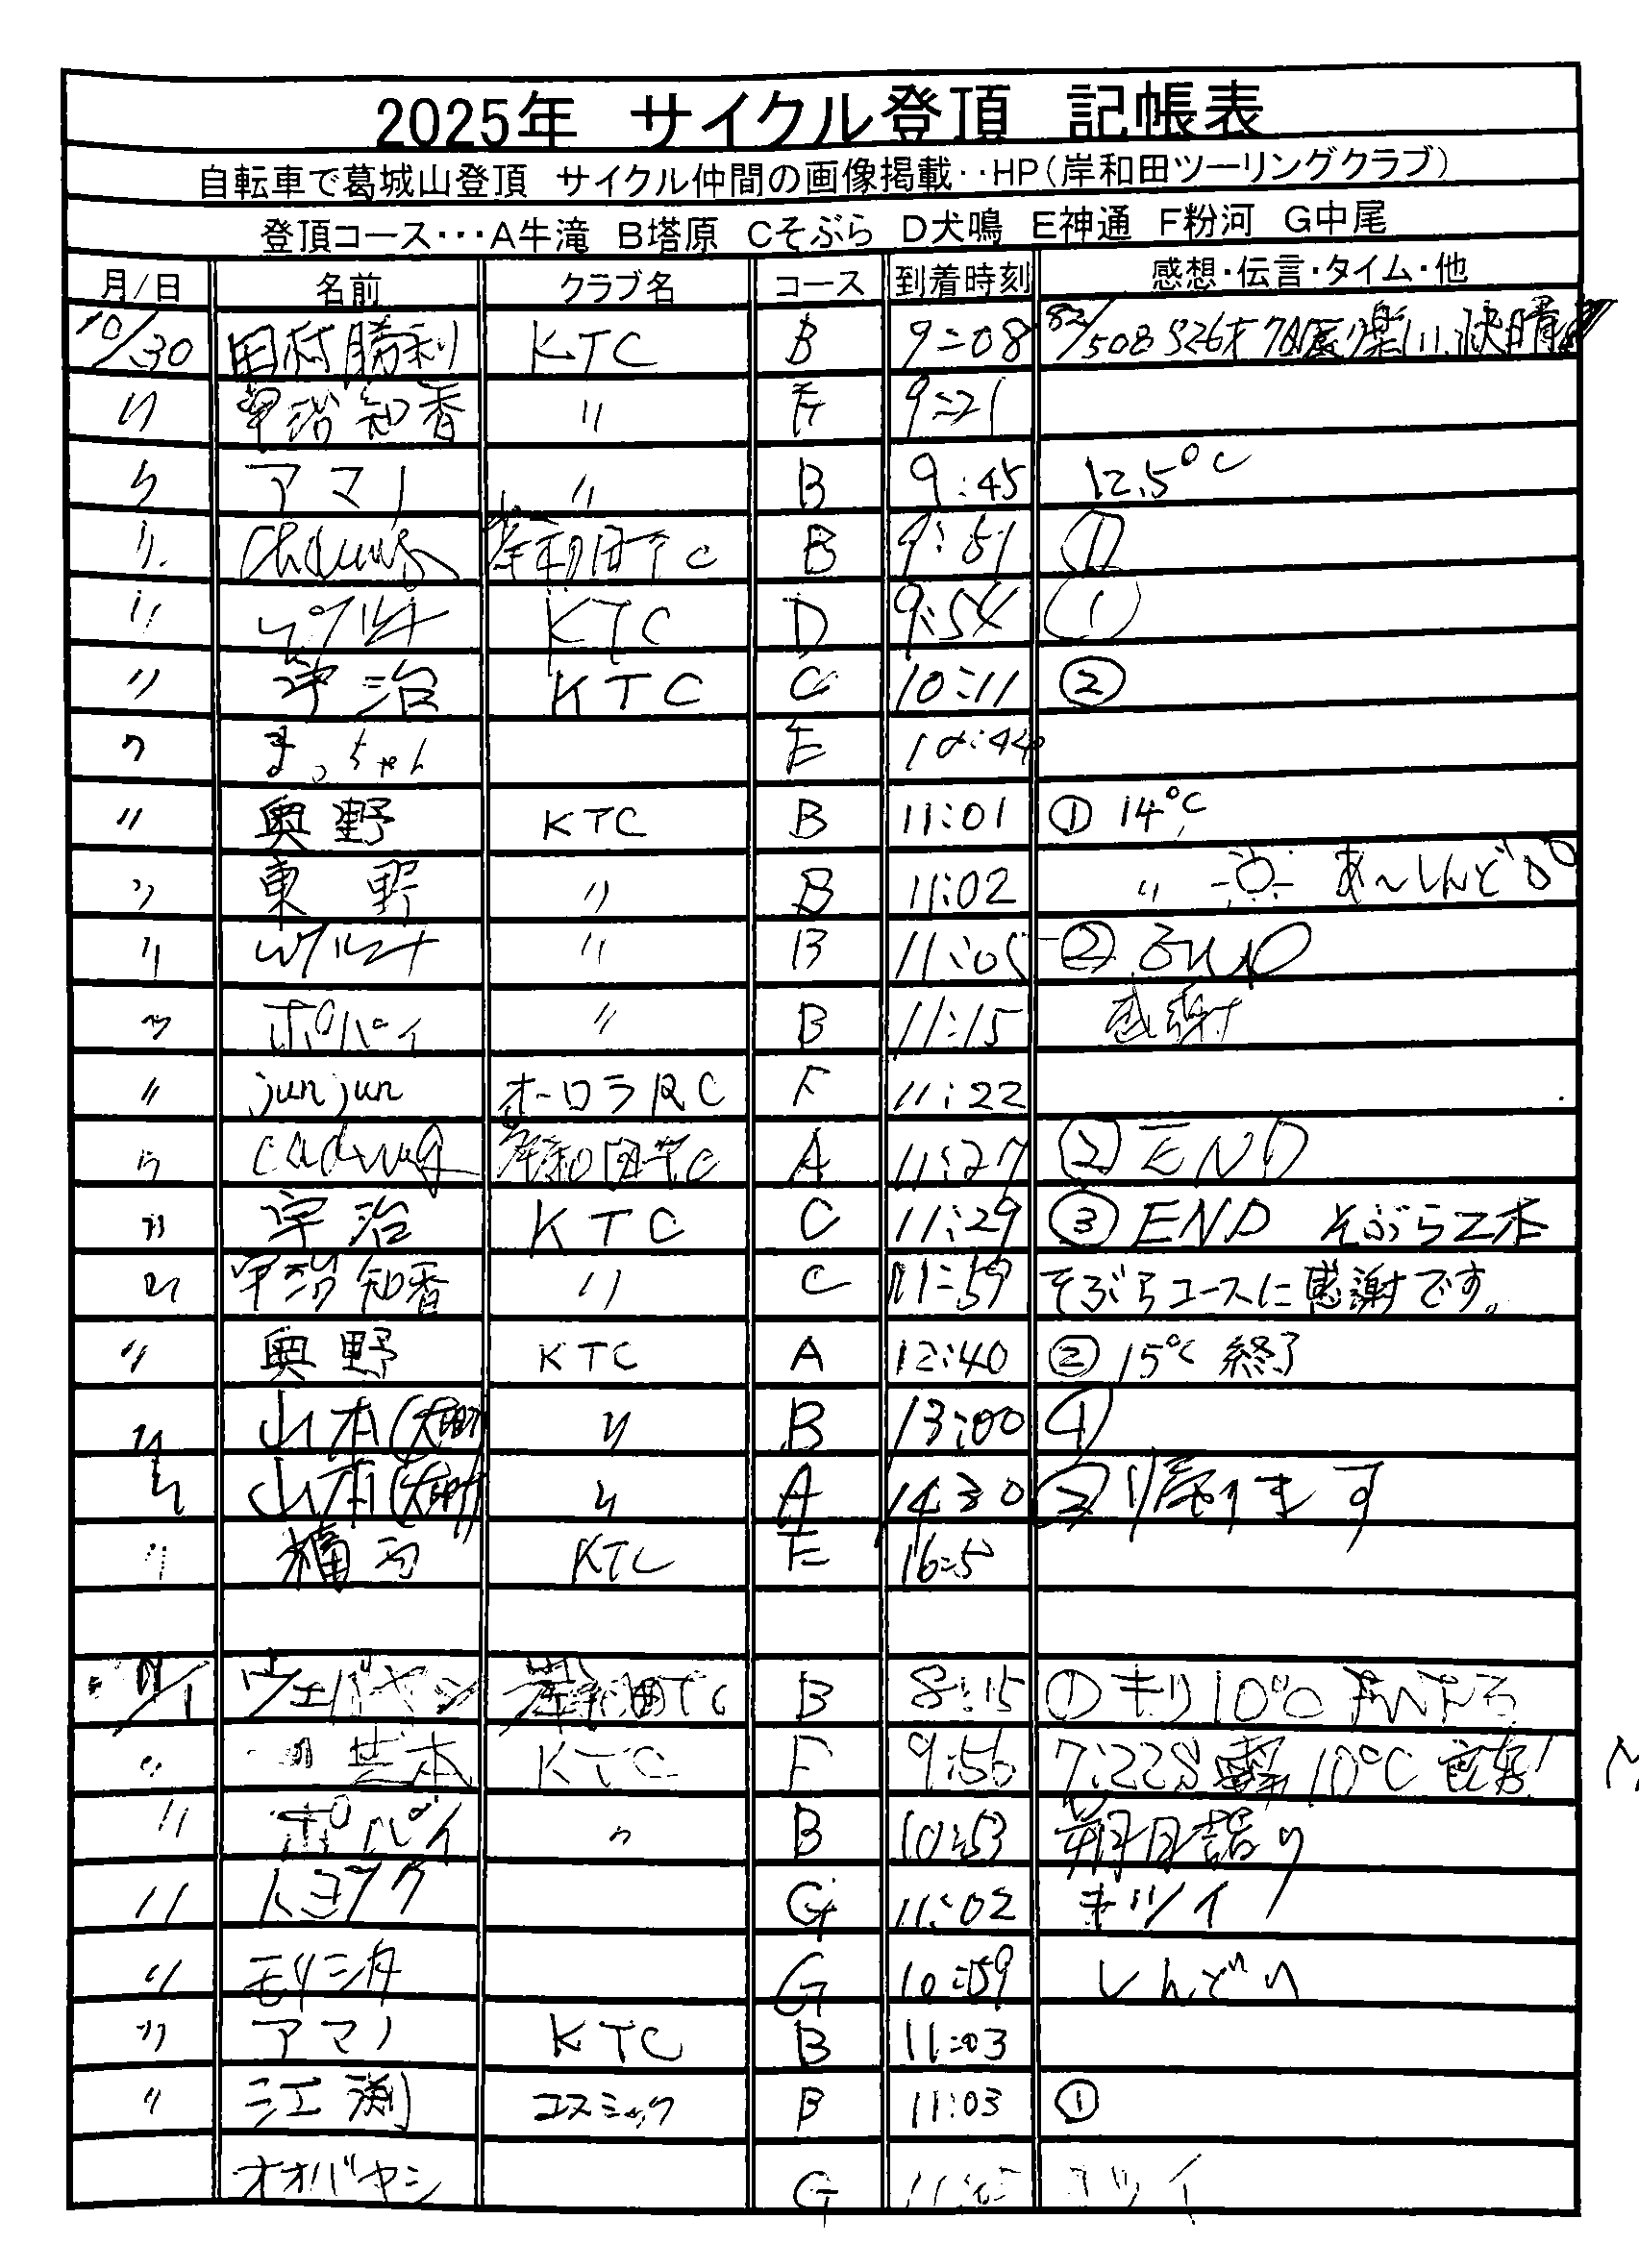 2025年 サイクル登頂 記帳表
自転車で葛城山登頂 サイクル仲間の画像掲載‥HP(岸和田ツーリングクラブ)
登頂コース･･･A牛滝 B塔原 Cそぶら D犬鳴 E神通 F粉河 G中尾
月/日 名前 クラブ名 コース 到着時刻 感想・伝言・タイム・他
10/30 田村勝利 KTC B 9:08 82/508 526才 78歳 快晴
〃 宇治知香 〃 E 9:21
〃 アマノ 〃 B 9:45 12.5℃
〃 岸和田TC B 9:51 ①
〃 KTC D 9:54 ①
〃 宇治 KTC C 10:11 ②
〃 まっちゃん E 10:44
〃 奥野 KTC B 11:01 ① 14℃
〃 東野 〃 B 11:02 〃 あ〜しんど
〃 〃 B 11:05 ② END
〃 ポパイ 〃 B 11:15 感謝
〃 junjun オーロラRC F 11:22
〃 岸和田TC A 11:27 ② END
〃 宇治 KTC C 11:29 ③ END そぶら2本
〃 宇治知香 〃 C 11:59 そぶらコースに感謝です。
〃 奥野 KTC A 12:40 ② 15℃ 終了
〃 山本(大助) 〃 B 13:00 ①
〃 山本(大助) 〃 A 14:30 ② 帰ります
〃 KTC E 16:5
11/1 ヴェバヤシ 岸和田TC B 8:15 ① キリ 10℃
〃 芝本 KTC F 9:56 7:22S 10℃
〃 ポパイ 〃 B 10:53 朔日詣り
〃 トヨフク G 11:02 キツイ
〃 モリシタ G 10:59 しんどい
〃 アマノ KTC B 11:03
〃 江渕 コスミック B 11:03 ①
オオバヤシ G キツイ